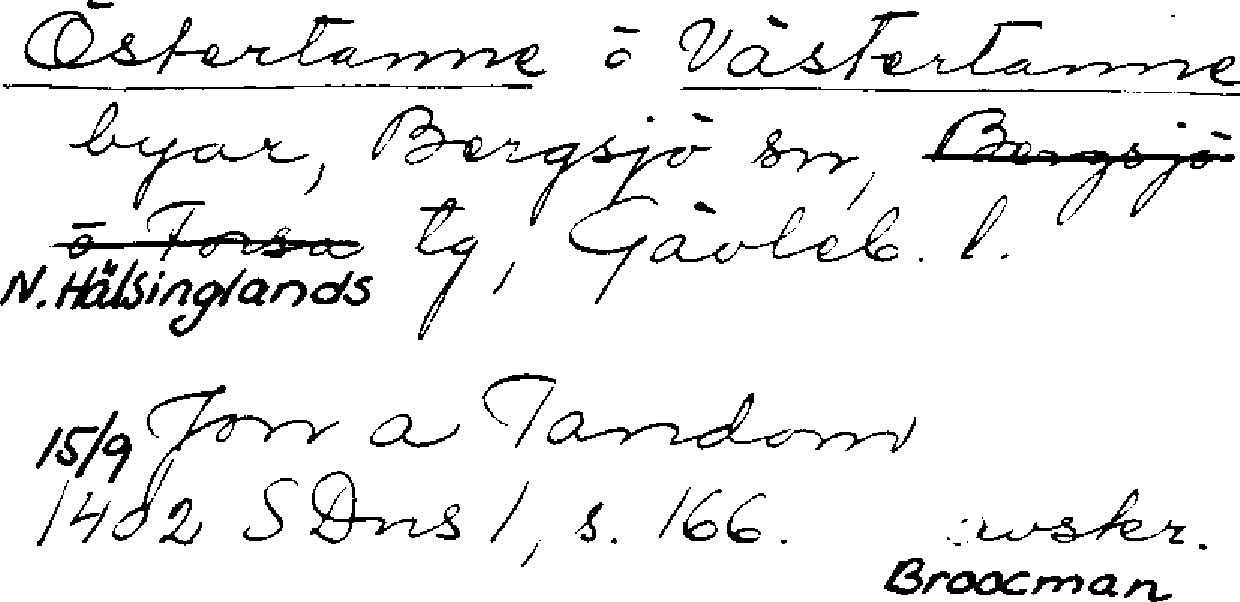 Östertanne o Västertanne
byar, Bergsjö sn, Bergsjö
o Forsa tg, Gävleb. l.
N. Hälsinglands
15/9 Jon a Tandom
1402 SDns 1, s. 166. avskr.
Broocman